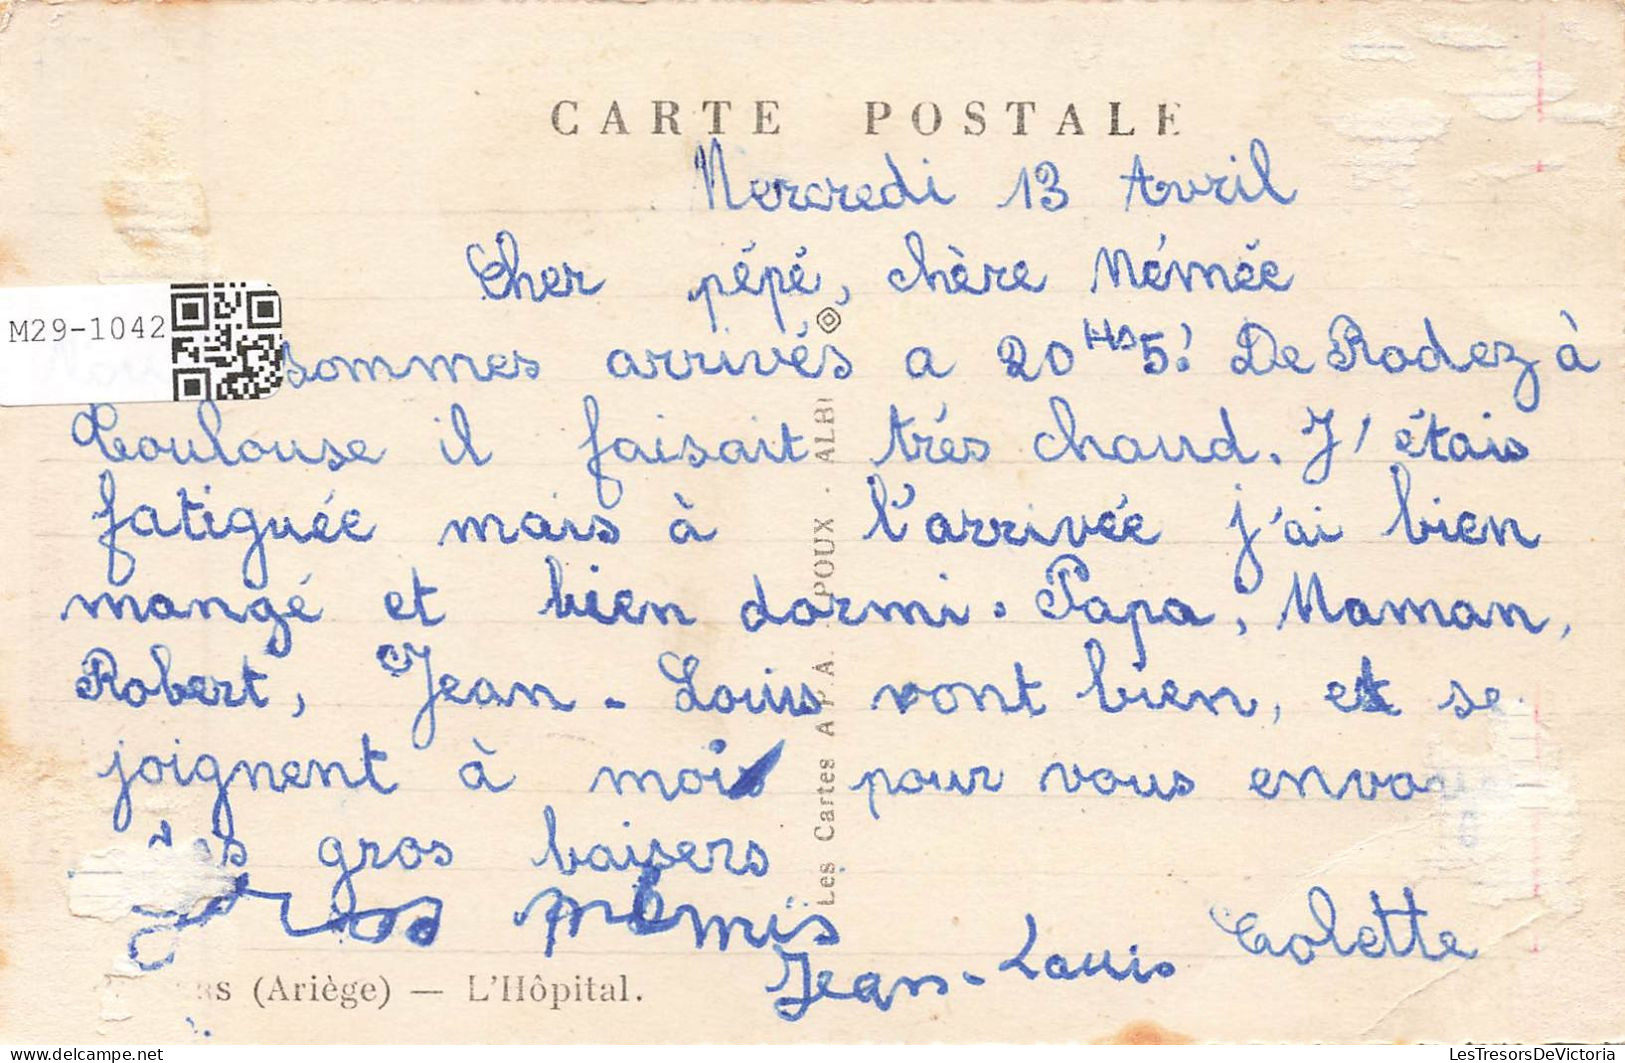 CARTE POSTALE
Mercredi 13 Avril
Cher pépé, chère Mémée
M29-1042
sommes arrivés a 20 Hs 5! De Rodez à
Toulouse il faisait trés chaud. J'étais
fatiguée mais à l'arrivée j'ai bien
mangé et bien dormi. Papa, Maman,
Robert, Jean-Louis vont bien, et se
joignent à moi pour vous
gros baisers
Jean-Louis Colette
(Ariège) — L'Hôpital.
Les Cartes A P A. POUX - ALBI
LesTresorsDeVictoria
www.delcampe.net